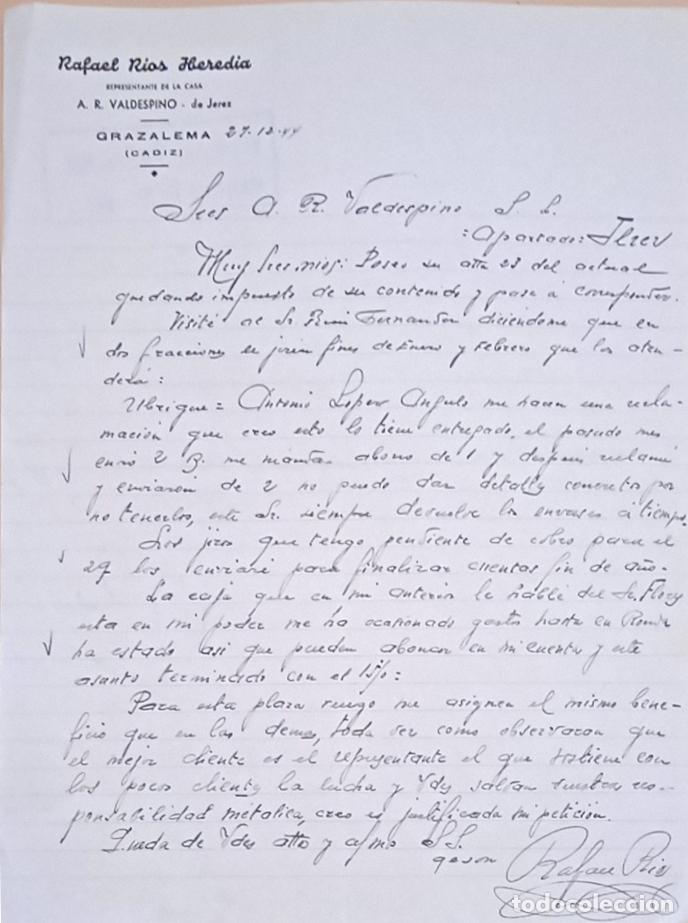 Rafael Rios Heredia
REPRESENTANTE DE LA CASA
A. R. VALDESPINO - de Jerez
GRAZALEMA 27-12-44
(CADIZ)
Sres A. R. Valdespino S. L.
:Apartado: Jerez
Muy Sres mios: Poseo su atta 23 del actual
quedando impuesto de su contenido y paso a
Visité al Sr Fernandez diciendome que en
dos fracciones le jiren fines de Enero y Febrero que los aten-
derá:
Ubrique = Antonio Lopez Angulo me hacen una recla-
mación que creo esto lo tiene entregado, el pasado mes
envió 2 B. me mandan abono de 1 y despues reclamé
y enviaron de 2 no puedo dar detalles concretos por
no tenerlos, este Sr. siempre devuelve los envases a tiempo.
Los jiros que tengo pendiente de cobro para el
29 los enviaré para finalizar cuentas fin de año.
La caja que en mi anterior le hablé del Sr. Flores
esta en mi poder me ha ocasionado gastos hasta en Ronda
ha estado asi que pueden abonar en mi cuenta y este
asunto terminado con el
Para esta plaza ruego me asignen el mismo bene-
ficio que en las demas, toda vez como observaran que
el mejor cliente es el representante el que sostiene con
los pocos clientes la lucha y Vdes salvan nuestra res-
ponsabilidad metalica, creo es justificada mi petición.
Queda de Vdes atto y afmo S.S.
Rafael Rios
todocoleccion